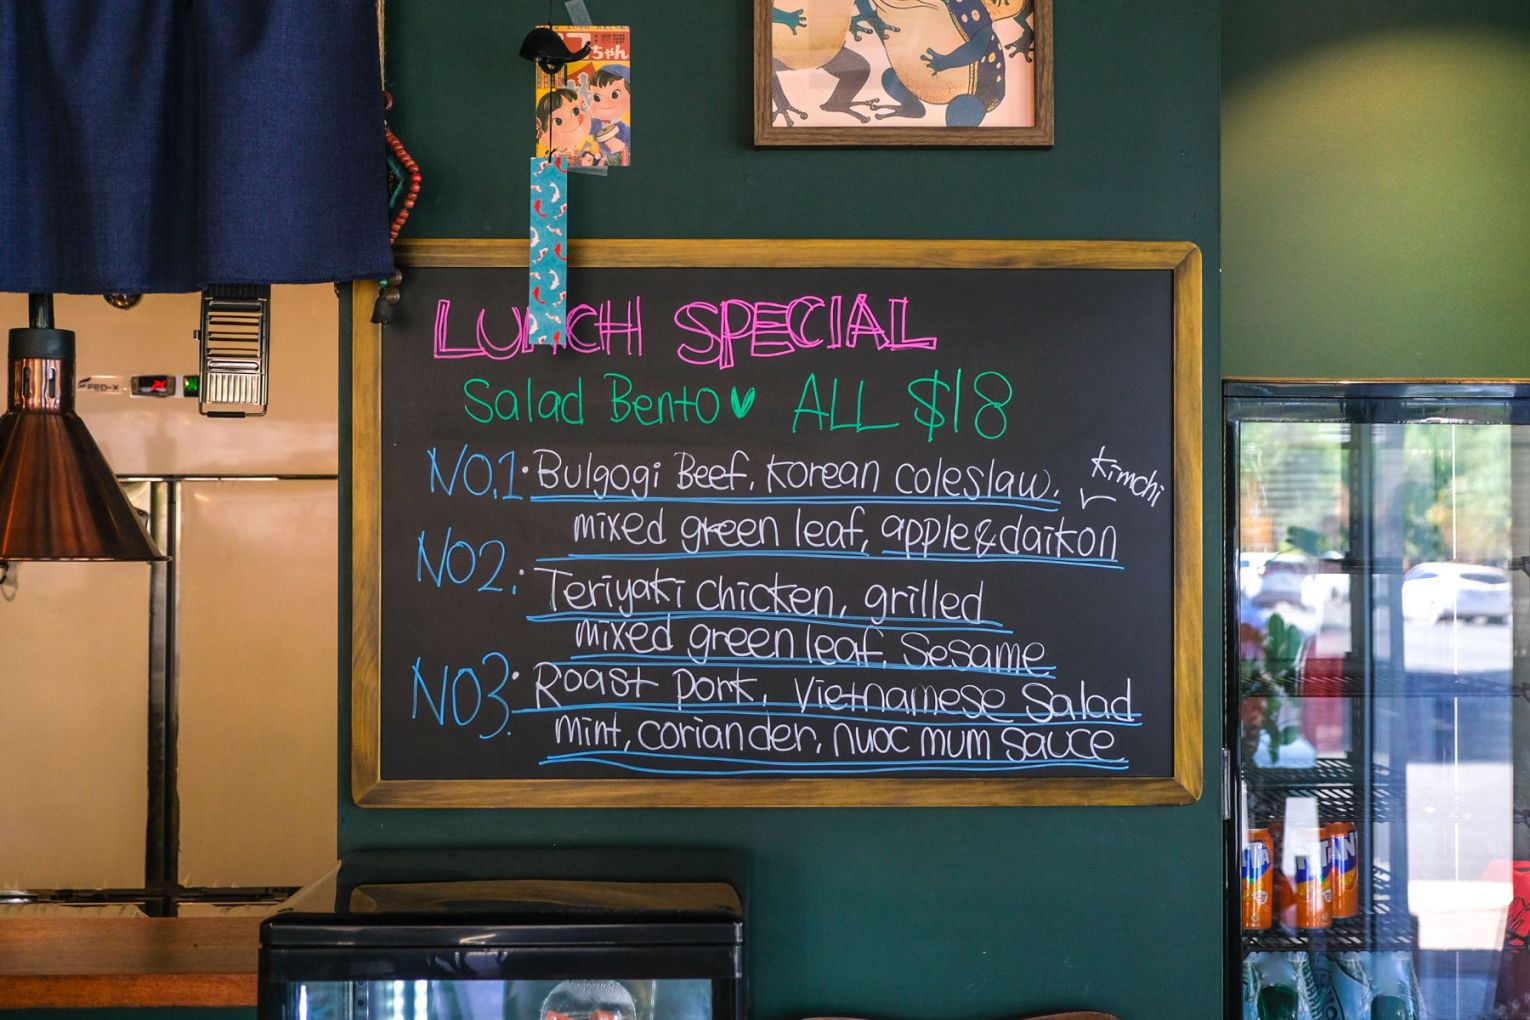 ちゃん
LUNCH SPECIAL
Salad Bento ♥ ALL $18
NO.1 · Bulgogi Beef, Korean coleslaw, kimchi
mixed green leaf, apple & daikon
NO2. · Teriyaki chicken, grilled
mixed green leaf, Sesame
NO3. · Roast pork, Vietnamese Salad
mint, coriander, nuoc mum sauce
FED-X